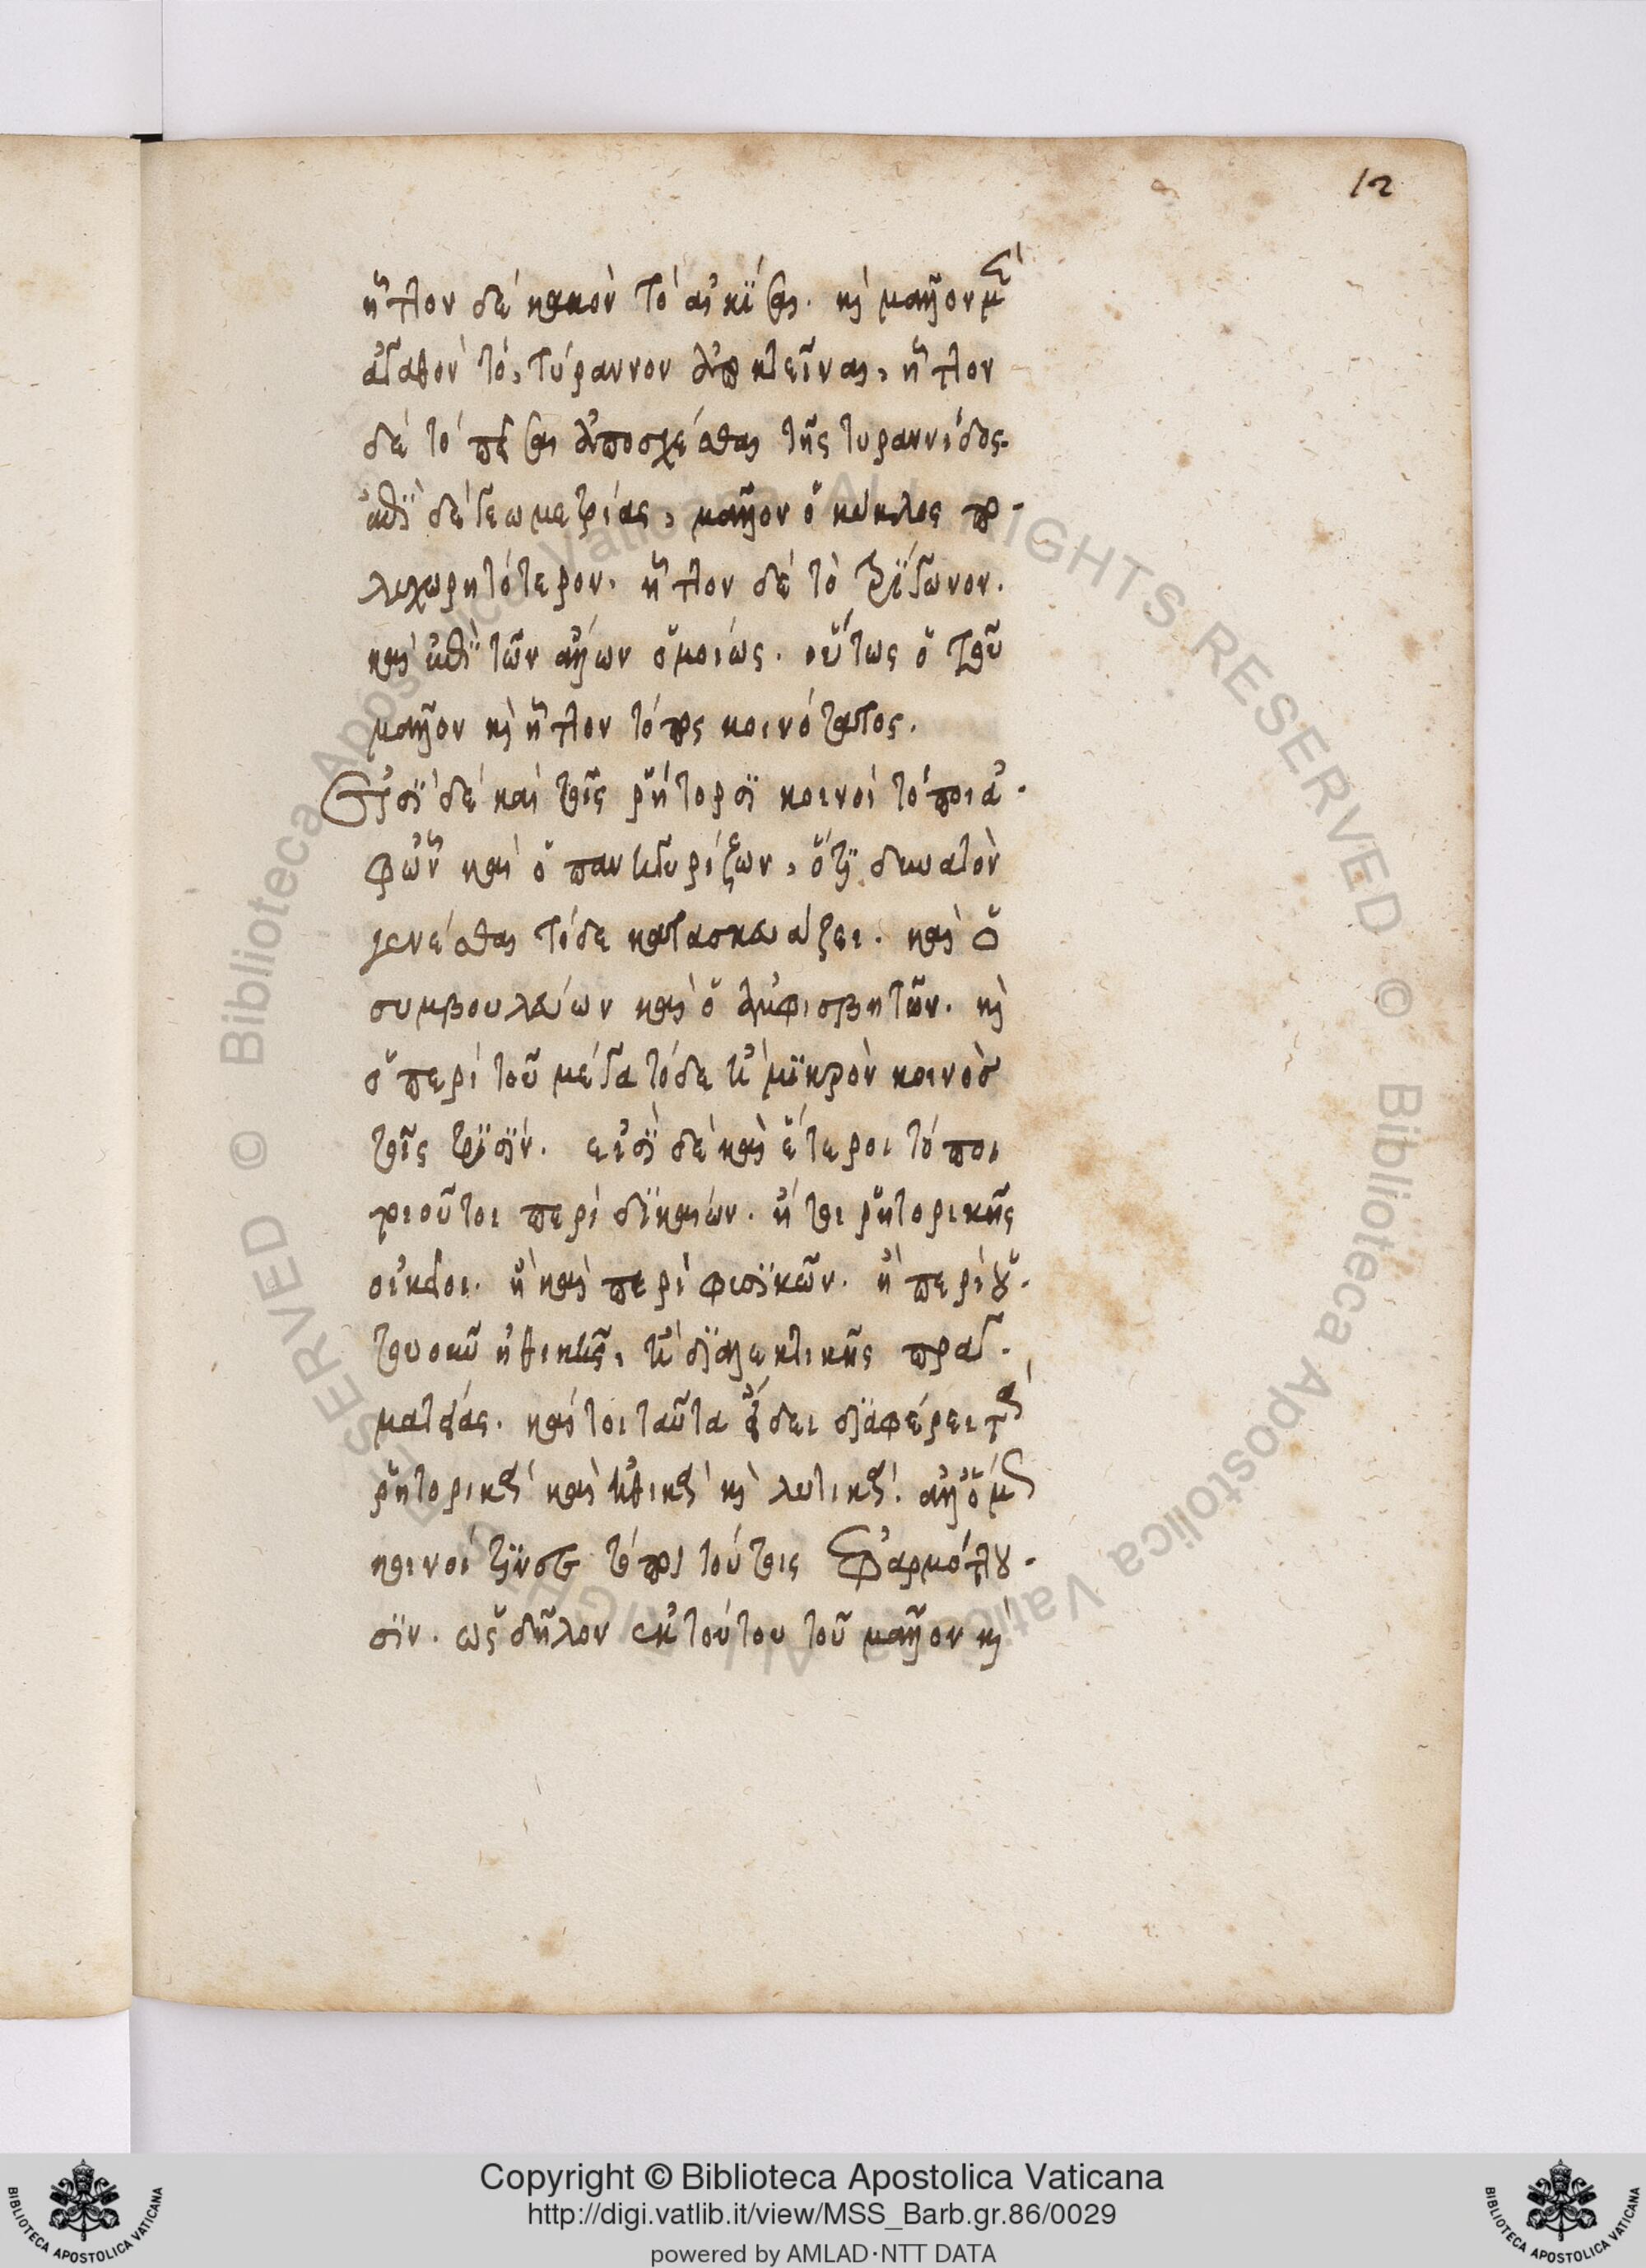 12
ἧττον δὲ κακὸν τὸ αἰκίσαι. καὶ μᾶλλον μὲν
ἀγαθὸν τὸ, τύραννον ἀποκτεῖναι, ἧττον
δὲ τὸ πεῖσαι ἀποσχέσθαι τῆς τυραννίδος.
ἐπὶ δὲ γεωμετρίας, μᾶλλον ὁ κύκλος πο-
λυχωρητότερον. ἧττον δὲ τὸ τρίγωνον.
καὶ ἐπὶ τῶν ἄλλων ὁμοίως. οὕτως ὁ τοῦ
μᾶλλον καὶ ἧττον τόπος κοινότατος.
Εἰσὶ δὲ καὶ τοῖς ῥήτορσι κοινοὶ τόποι ἀ-
φ' ὧν καὶ ὁ πανηγυρίζων, ὅτι δυνατὸν
γενέσθαι τόδε κατασκευάζει. καὶ ὁ
συμβουλεύων καὶ ὁ ἀμφισβητῶν. καὶ
ὁ περὶ τοῦ μέγα τόδε ἢ μικρὸν κοινὸς
τοῖς τρισίν. εἰσὶ δὲ καὶ ἕτεροι τόποι
τοιοῦτοι περὶ δικαίων. ἤτοι ῥητορικῆς
οἰκεῖοι. ἢ καὶ περὶ φυσικῶν. ἢ περὶ
ἠθικῆς, ἢ διαλεκτικῆς πραγ-
ματείας. καίτοι ταῦτα εἴδει διαφέρει τὰ
ῥητορικὰ καὶ ἠθικὰ καὶ
κοινοί τινες τόποι τούτοις ἐφαρμόττου-
σιν. ὡς δῆλον ἐκ τούτου τοῦ μᾶλλον καὶ
Copyright © Biblioteca Apostolica Vaticana
http://digi.vatlib.it/view/MSS_Barb.gr.86/0029
powered by AMLAD·NTT DATA
BIBLIOTECA APOSTOLICA VATICANA
BIBLIOTECA APOSTOLICA VATICANA
© Biblioteca Apostolica Vaticana ALL RIGHTS RESERVED
© Biblioteca Apostolica Vaticana ALL RIGHTS RESERVED